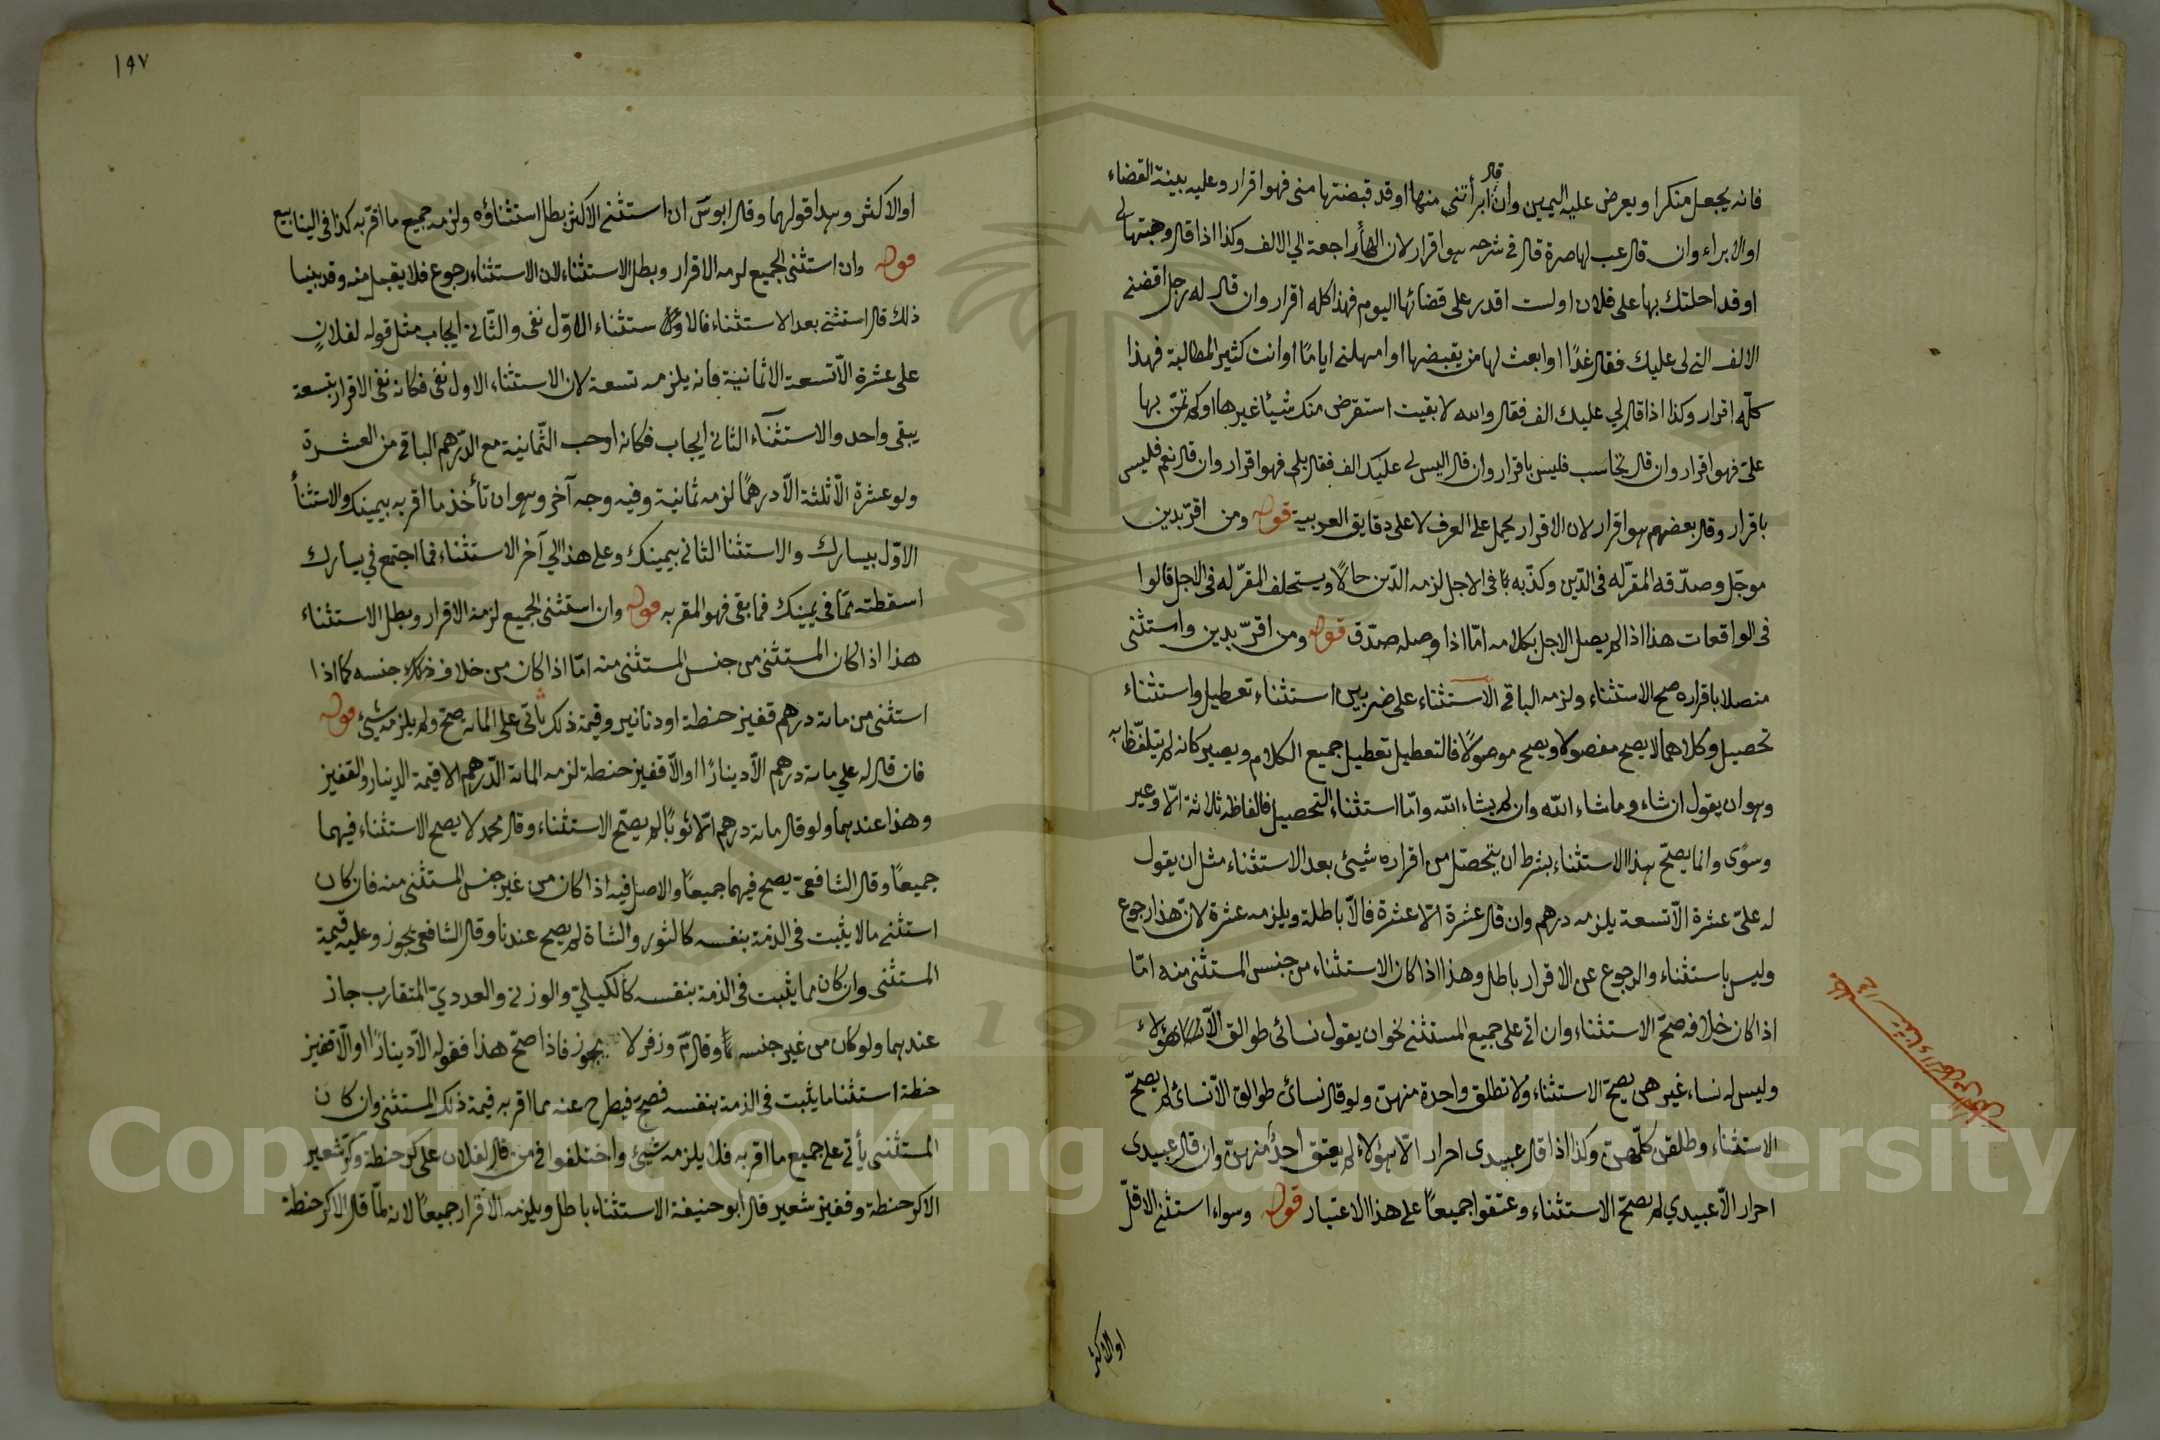 فانه يجعل منكرا ويعرض عليه اليمين وان قال ابرأتني منها او قد قبضتها مني فهو اقرار وعليه بينة القضاء
او الابراء وان قال عب لها صرة قال في شرحه هو اقرار لان الهاء راجعة الي الالف وكذا اذا قال وهبتها لي
او قد احلتك بها على فلان او لست اقدر على قضائها اليوم فهذا كله اقرار وان قال له رجل اقضني
الالف التي لى عليك فقال غدًا او ابعث لها من يقبضها او امهلني ايامًا او انت كثير المطالبة فهذا
كلّه اقرار وكذا اذا قال لي عليك الف فقال والله لا بقيت استقرض منك شيئا غيرها او كم تمنّ بها
عليّ فهو اقرار وان قال نحاسب فليس باقرار وان قال اليس لي عليك الف فقال بلى فهو اقرار وان قال نعم فليس
باقرار وقال بعضهم هو اقرار لان الاقرار يحمل على العرف لا على دقايق العربية قوله ومن اقرّ بدين
موجّل وصدّقه المقرّ له فى الدّين وكذّبه في الاجل لزمه الدّين حالًا ويستحلف المقرّ له فى الاجل قالوا
فى الواقعات هذا اذا لم يصل الاجل بكلامه امّا اذا وصله صدّق قوله ومن اقرّ بدين واستثنى
متصلا باقراره صح الاستثناء ولزمه الباقي الاستثناء على ضربين استثناء تعطيل واستثناء
تحصيل وكلاهما لا يصح مفصولا ويصح موصولًا فالتعطيل تعطيل جميع الكلام ويصير كانه لم يتلفّظ به
وهو ان يقول ان شاء وما شاء الله وان لم يشاء الله وامّا استثناء التحصيل فالفاظه ثلاثة الّا وغير
وسوًى وانما يصحّ هذا الاستثناء بشرط ان يتحصّل من اقراره شيئ بعد الاستثناء مثل ان يقول
له عليّ عشرة الّا تسعة يلزمه درهم وان قال عشرة الّا عشرة فالّا باطلة ويلزمه عشرة لانّ هذا رجوع
وليس باستثناء والرجوع عن الاقرار باطل وهذا اذا كان الاستثناء من جنس المستثنى منه امّا
اذا كان خلافه صحّ الاستثناء وان اتى على جميع المستثنى نحو ان يقول نسائى طوالق الّا هؤلاء
وليس له نساء غيرهن يصحّ الاستثناء ولا تطلق واحدة منهنّ ولو قال نسائ طوالق الّا نسائ لم يصحّ
الاستثناء وطلقن كلّهنّ وكذا اذا قال عبيدى احرار الّا هؤلاء لم يعتق احدٌ منهن وان قال عبيدى
احرار الّا عبيدي لم يصحّ الاستثناء وعتقوا جميعاً على هذا الاعتبار قوله وسواء استثنى الاقلّ
او الاكثر
١٩٧
او الاكثر وهذا قولهما وقال ابو س ان استثنى الاكثر بطل استثناؤه ولزمه جميع ما اقرّ به كذا فى الينابيع
قوله وان استثنى الجميع لزمه الاقرار وبطل الاستثناء لان الاستثناء رجوع فلا يقبل منه وقد بينا
ذلك قال استثنى بعد الاستثناء فالاستثناء الاوّل نفى والثّاني ايجاب مثل قوله لفلانٍ
على عشرة الّا تسعة الا ثمانية فانه يلزمه تسعة لان الاستثناء الاول نفى فكانه نفى الاقرار بتسعة
يبقى واحد والاستثناء الثانى ايجاب فكانه اوجب الثّمانية مع الدّرهم الباقى من العشرة
ولو عشرة الّا ثلثة الّا درهمًا لزمه ثمانية وفيه وجه آخر وهو ان تأخذ ما اقر به بيمينك والاستثنأ
الاوّل بيسارك والاستثنا الثانى بيمينك وعلى هذا الي آخر الاستثناء فما اجتمع في يسارك
اسقطته ممّا فى يمينك فما بقى فهو المقر به قوله وان استثنى الجميع لزمه الاقرار وبطل الاستثناء
هذا اذا كان المستثنى من جنس المستثنى منه امّا اذا كان من خلاف جنسه كما اذا
استثنى من مائة درهم قفيز حنطة او دنانير وقيمة ذلك تأتى على المائة صحّ ولم يلزمه شيئ قوله
فان قال له علي مائة درهم الّا دينارًا او الّا قفيز حنطة لزمه المائة الدّرهم الا قيمة الدينار والقفيز
وهذا عندهما ولو قال مائة درهم الّا ثوبًا لم يصحّ الاستثناء وقال محمد لا يصح الاستثناء فيهما
جميعاً وقال الشافعىّ يصح فيهما جميعًا والاصل فيه اذا كان من غير جنس المستثنى منه فان كان
استثنى ما لا يثبت فى الذمة بنفسه كالثور والشاة لم يصح عندنا وقال الشافعى يجوز وعليه قيمة
المستثنى وان كان مما يثبت فى الذمة بنفسه كالكيليّ والوزنى والعددي المتقارب جاز
عندهما ولو كان من غير جنسه وقال م وزفر لا يجوز فاذا صحّ هذا فقوله الّا دينارًا او الّا قفيز
حنطة استثنا ما يثبت فى الذمة بنفسه فصحّ فيطرح عنه مما اقر به قيمة ذلك المستثنى وان كان
المستثنى يأتى على جميع ما اقر به فلا يلزمه شيئ واختلفوا في من قال لفلان على كر حنطة وكرّ شعير
الا كر حنطة وقفيز شعير قال ابو حنيفة الاستثناء باطل ويلزمه الاقرار جميعاً لانه لمّا قال الا كر حنطة
Copyright © King Saud University